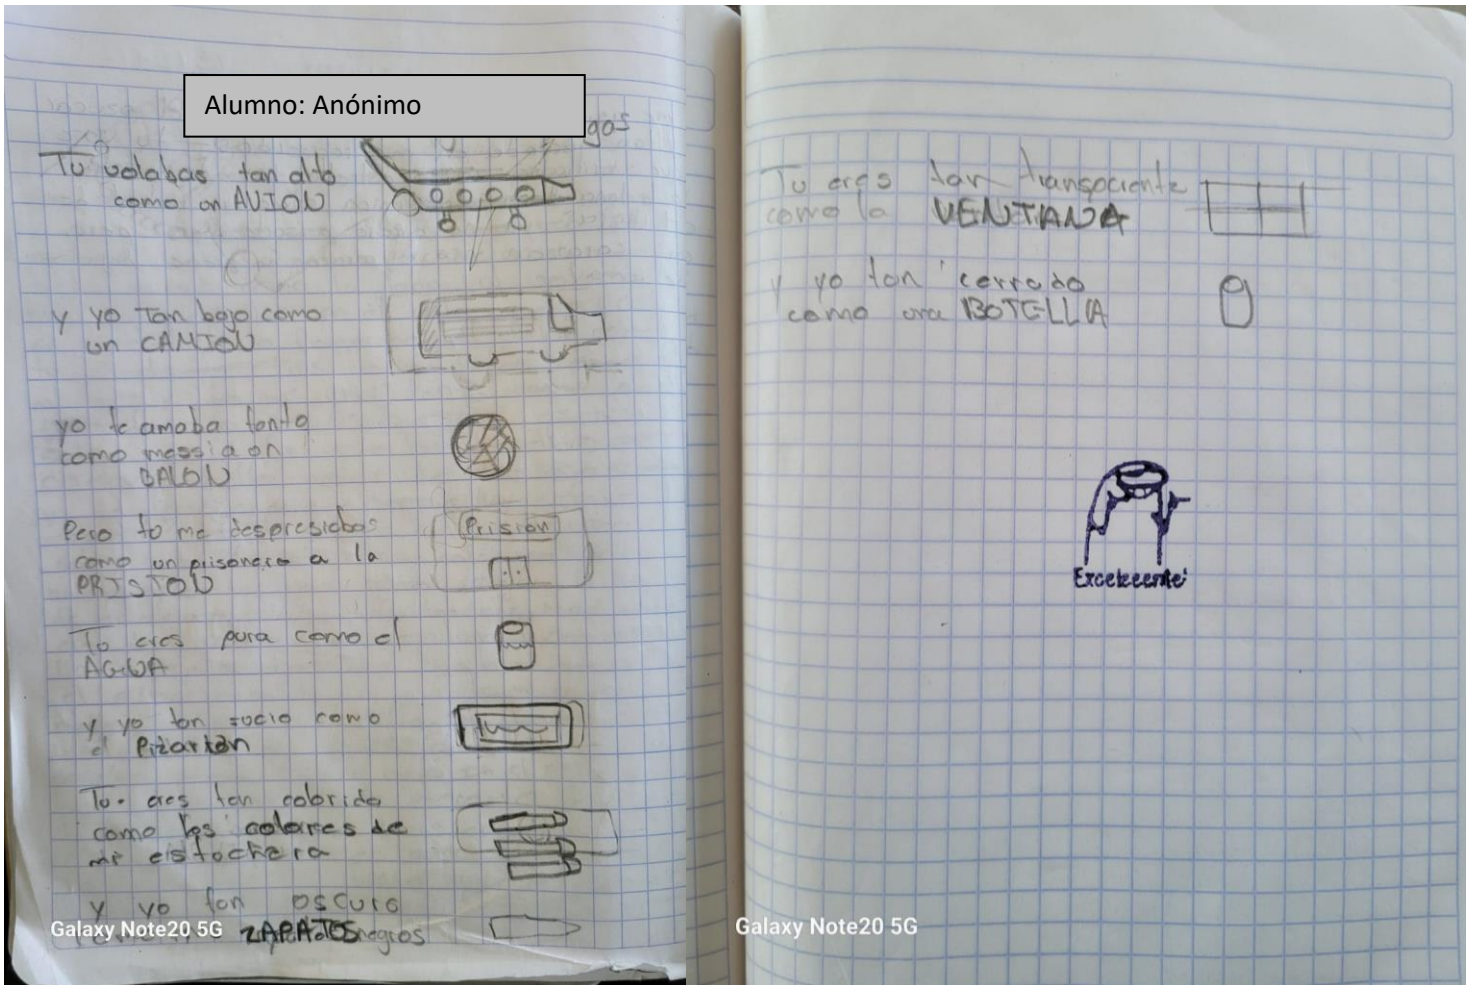 Alumno: Anónimo
gos
Tu volabas tan alto
como un AVION
y yo Tan bajo como
un CAMION
yo te amaba tanto
como messi a un
BALON
Pero tu me despresiabas
como un prisonero a la
PRISION
Prision
Tu eres pura como el
AGUA
y yo tan sucio como
el Pizarron
Tu eres tan colorida
como los colores de
mi
y yo tan oscuro
ZAPATOS negros
Galaxy Note20 5G
Tu eres tan transpariente
como la VENTANA
y yo tan cerrado
como una BOTELLIA
Exceleeente
Galaxy Note20 5G